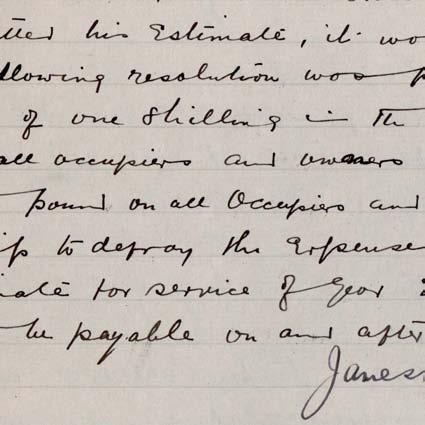 tted his Estimate, it wo
llowing resolution was p
of one Shilling in the
all occupiers and owners
pound on all Occupiers and
ip to defray the Expense
mate for service of Year
be payable on and after
James